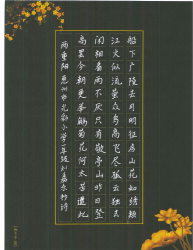 船下广陵去月明征虏山花如绣颊
江火似流萤众鸟高飞尽孤云独去
闲相看两不厌只有敬亭山昨日登
高罢今朝更举觞菊花何太苦遭此
两重阳 惠州市光彩小学一年级刘嘉东抄诗